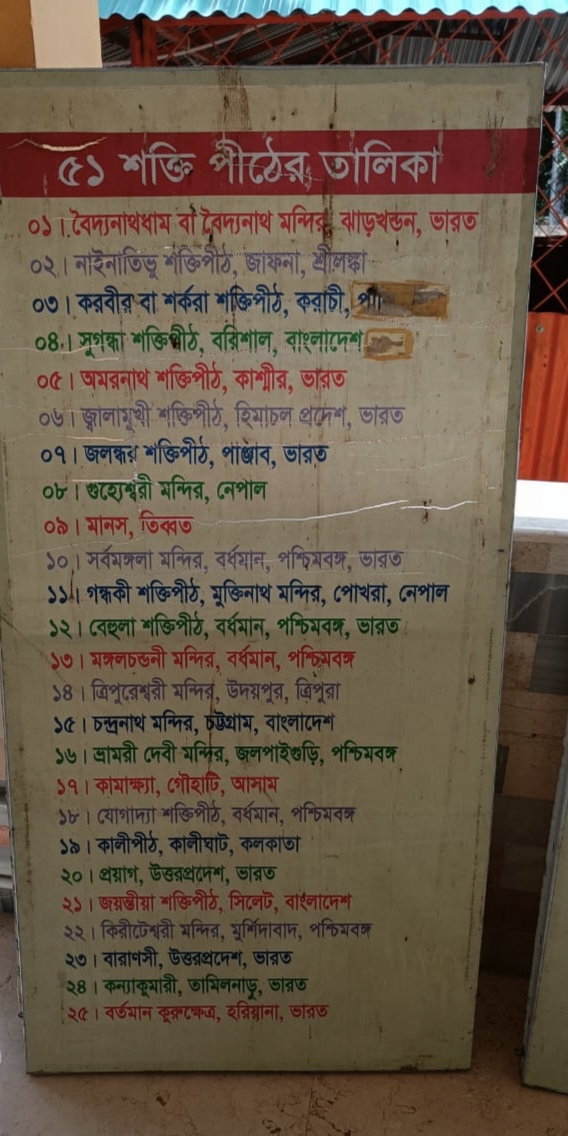 ৫১ শক্তি পীঠের তালিকা
০১। বৈদ্যনাথধাম বা বৈদ্যনাথ মন্দির, ঝাড়খন্ডন, ভারত
০২। নাইনাতিভু শক্তিপীঠ, জাফনা, শ্রীলঙ্কা
০৩। করবীর বা শর্করা শক্তিপীঠ, করাচী,
০৪। সুগন্ধা শক্তিপীঠ, বরিশাল, বাংলাদেশ
০৫। অমরনাথ শক্তিপীঠ, কাশ্মীর, ভারত
০৬। জ্বালামুখী শক্তিপীঠ, হিমাচল প্রদেশ, ভারত
০৭। জলন্ধর শক্তিপীঠ, পাঞ্জাব, ভারত
০৮। গুহ্যেশ্বরী মন্দির, নেপাল
০৯। মানস, তিব্বত
১০। সর্বমঙ্গলা মন্দির, বর্ধমান, পশ্চিমবঙ্গ, ভারত
১১। গন্ধকী শক্তিপীঠ, মুক্তিনাথ মন্দির, পোখরা, নেপাল
১২। বেহুলা শক্তিপীঠ, বর্ধমান, পশ্চিমবঙ্গ, ভারত
১৩। মঙ্গলচন্ডনী মন্দির, বর্ধমান, পশ্চিমবঙ্গ
১৪। ত্রিপুরেশ্বরী মন্দির, উদয়পুর, ত্রিপুরা
১৫। চন্দ্রনাথ মন্দির, চট্টগ্রাম, বাংলাদেশ
১৬। ভ্রামরী দেবী মন্দির, জলপাইগুড়ি, পশ্চিমবঙ্গ
১৭। কামাক্ষ্যা, গৌহাটি, আসাম
১৮। যোগাদ্যা শক্তিপীঠ, বর্ধমান, পশ্চিমবঙ্গ
১৯। কালীপীঠ, কালীঘাট, কলকাতা
২০। প্রয়াগ, উত্তরপ্রদেশ, ভারত
২১। জয়ন্তীয়া শক্তিপীঠ, সিলেট, বাংলাদেশ
২২। কিরীটেশ্বরী মন্দির, মুর্শিদাবাদ, পশ্চিমবঙ্গ
২৩। বারাণসী, উত্তরপ্রদেশ, ভারত
২৪। কন্যাকুমারী, তামিলনাড়ু, ভারত
২৫। বর্তমান কুরুক্ষেত্র, হরিয়ানা, ভারত